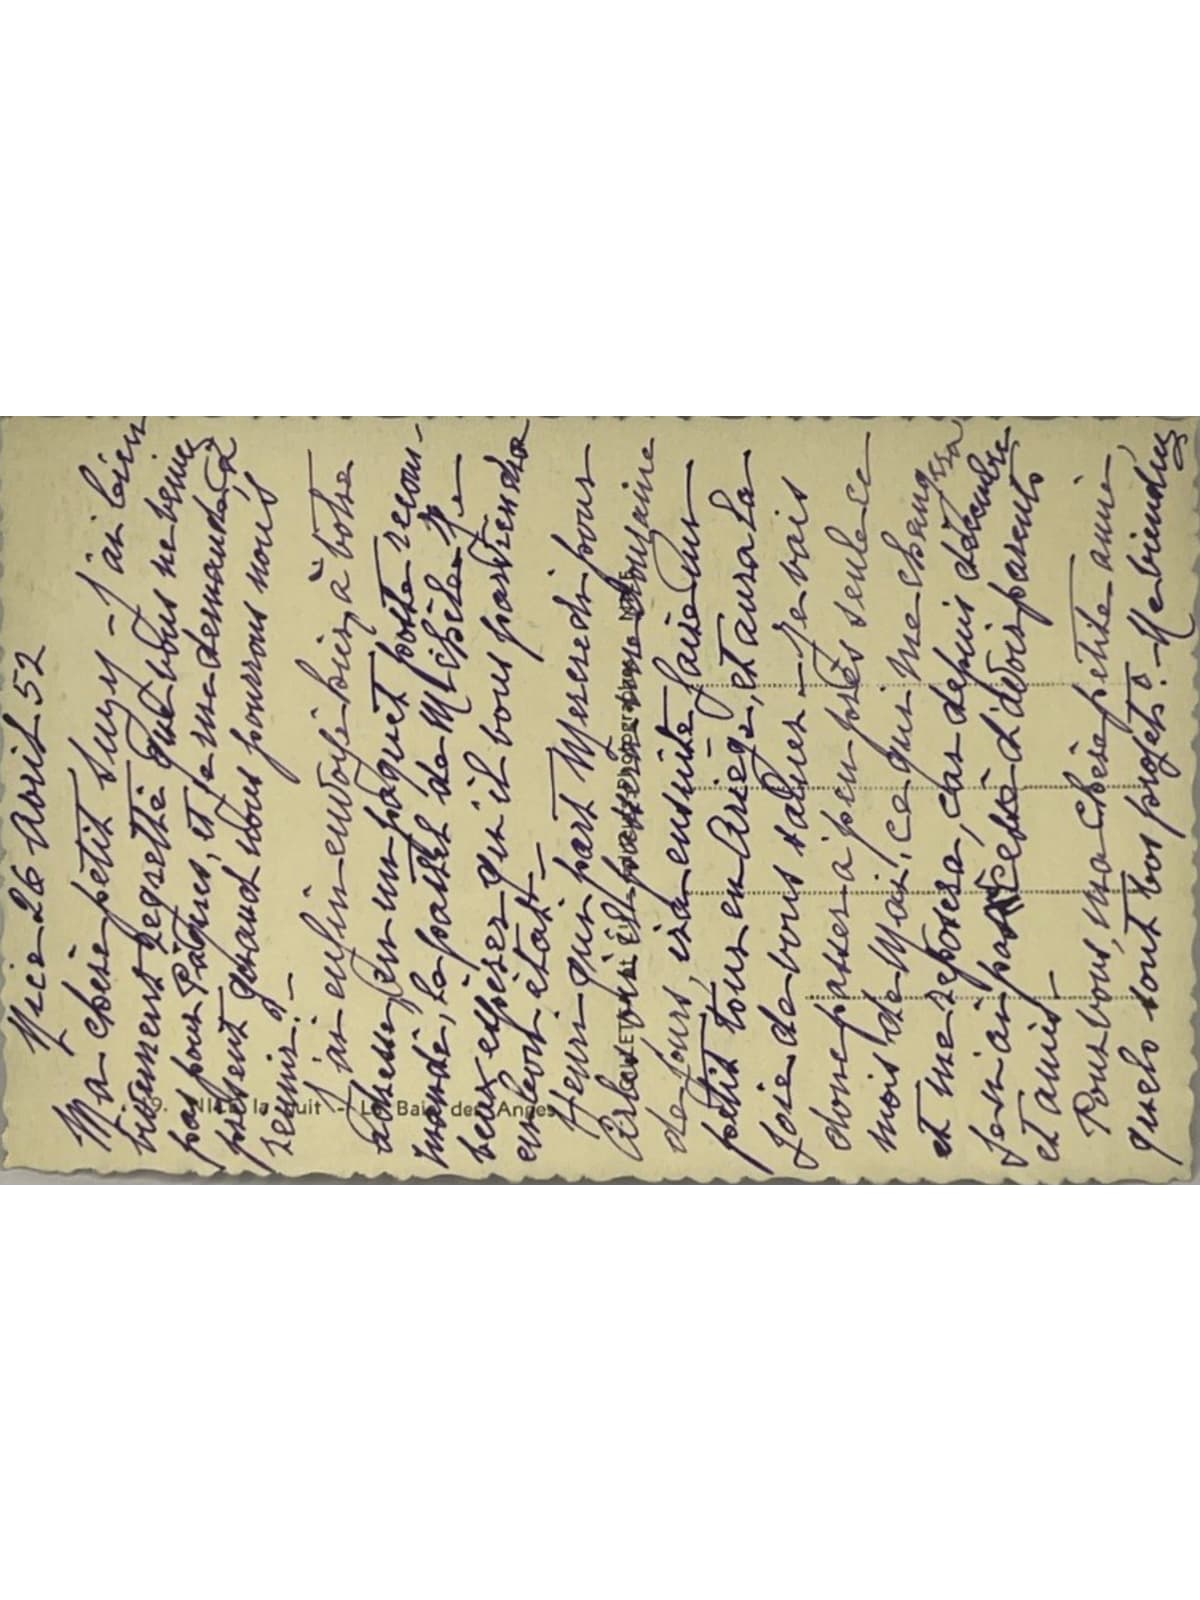 Nice 26 Avril 52
Ma chère petit Suzy – J'ai bien
vivement regretté que vous ne veniez
pas pour Pâques, et je me demande à
présent quand nous pourrons nous
réunir ? –
J'ai enfin envoyé hier, à votre
adresse, en un paquet poste recom-
mandé, le pastel de Michèle. Je
veux espérer qu'il vous parviendra
en bon état –
Henri qui part Mercredi pour
où il passera une douzaine
de jours, ira ensuite faire un
petit tour en Ariège, et aura la
joie de vous saluer – Je vais
donc passer à peu près seule ce
mois de Mai, ce qui me changera
et me reposera, car depuis décembre
je n'ai pas cessé d'avoir parents
et amis –
Pour vous, ma chère petite amie,
quels sont vos projets ? – Me viendrez
9. NICE la nuit – La Baie des Anges